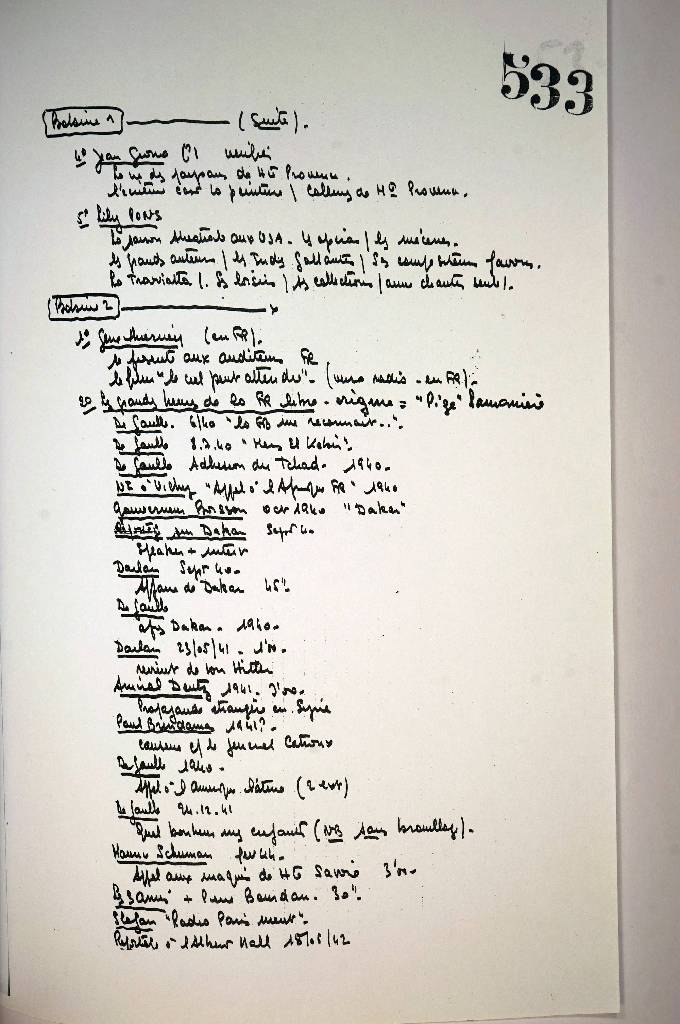 533
Bobine 1 (Suite).
4° Jean Giono
La vie des paysans de Hte Provence.
L'écriture comme la peinture / Collines de Hte Provence.
5° Lily PONS
La saison théâtrale aux USA. 4 opéras / les mécènes.
Les grands auteurs / les Indes Galantes / Ses compositeurs favoris.
La Traviatta /. Ses loisirs / ses collections /
Bobine 2
1° Gene Tierney (en FR).
se présente aux auditeurs FR
le film "le ciel peut attendre". (radio - en FR).
20. Les grands heures de la FR libre - origine = "Pige"
De Gaulle. 6/40 "la GB me reconnait..".
De Gaulle 8.7.40 "Mers El Kebir".
De Gaulle Adhésion du Tchad. 1940.
à Vichy "Appel à l'Afrique FR" 1940
Gouverneur Boisson oct 1940 "Dakar"
Reportage sur Dakar Sept 40
Speaker + interv
Darlan Sept 40.
Affaire de Dakar 45".
De Gaulle
après Dakar. 1940.
Darlan 23/05/41. 1'00.
revient de voir Hitler
Amiral Dentz 1941. 3'00.
Propagande étrangère en Syrie
Paul 1941?.
causerie le général Catroux
De Gaulle 1940.
Appel à l'Amérique latine (2 ext)
De Gaulle 24.12.41
Quel bonheur mes enfants (NB sans brouillage).
Maurice Schuman fev 44.
Appel aux maquis de Hte Savoie 3'00.
+ Pierre Bourdan. 30".
"Radio Paris ment".
Reportage à l'Albert Hall 18/05/42